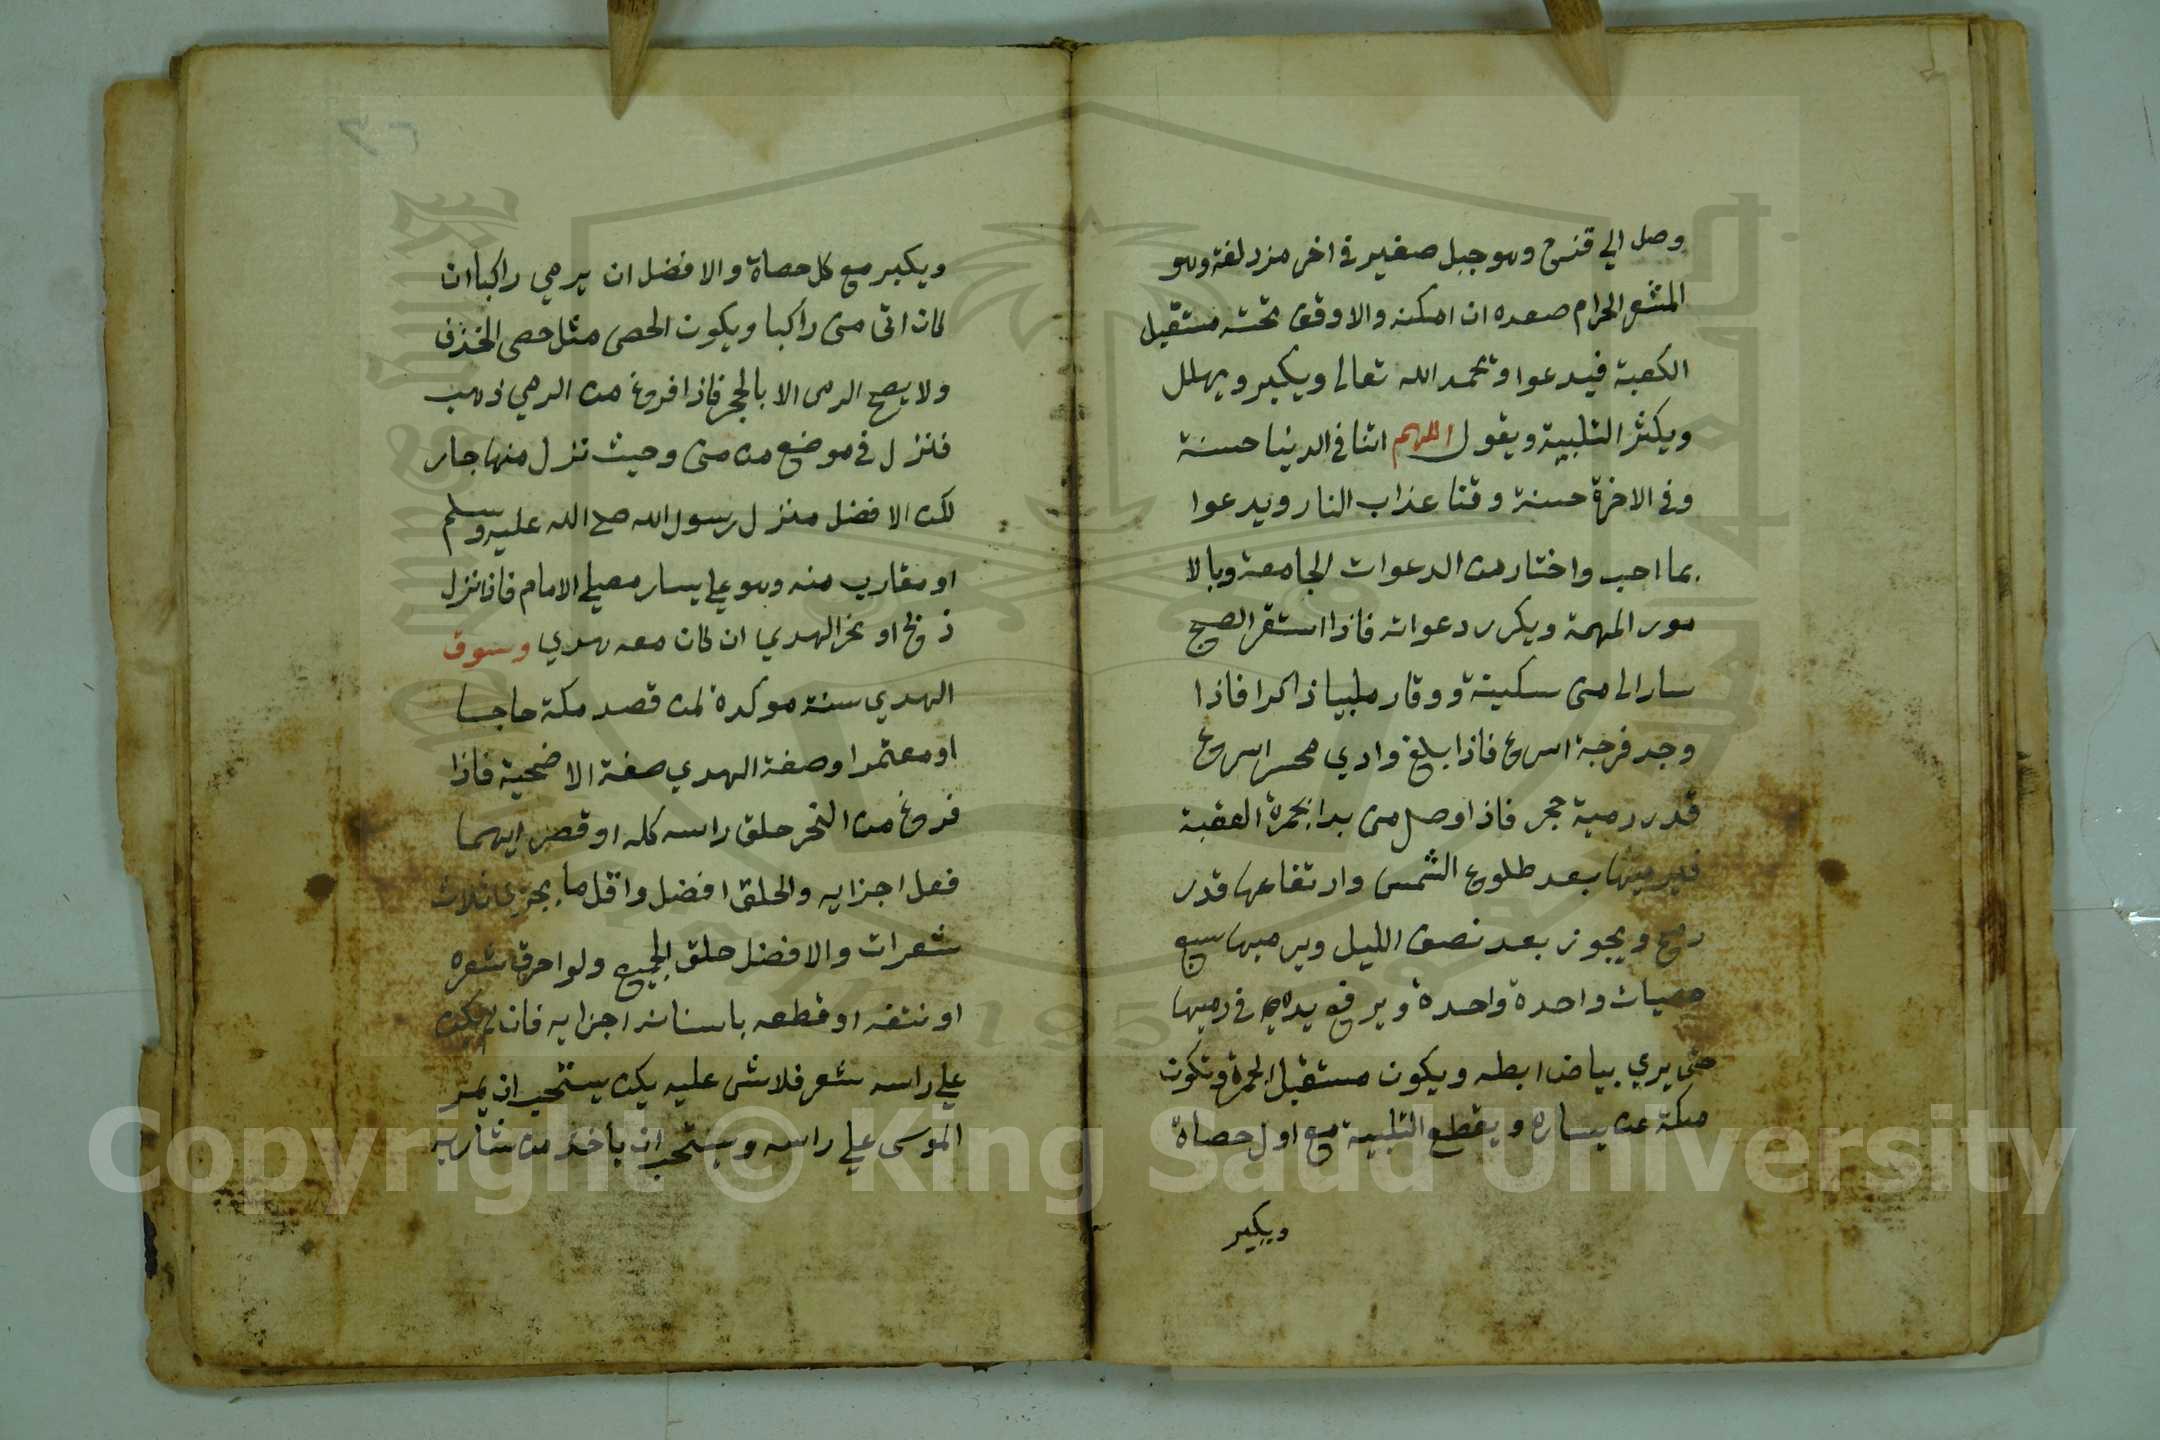 وصل الي قنزح وهو جبل صغير في اخر مزدلفة وهو
المشعر الحرام صعده ان امكنه والا وقف تحته مستقبل
الكعبة فيدعوا ويحمد الله تعالى ويكبر ويهلل
ويكثر التلبية ويقول اللهم اتنا في الدنيا حسنة
وفي الاخرة حسنة وقنا عذاب النار ويدعوا
بما احب واختار من الدعوات الجامعة وبالا
مور المهمة ويكرر دعواته فاذا استقر الصبح
سار الى منى سكينة ووقار ملبيا ذاكرا فاذا
وجد فرجة اسرع فاذا بلغ وادي محسر اسرع
قدر رمية حجر فاذا وصل منى بدا بجمرة العقبة
فيرميها بعد طلوع الشمس وارتفاعها قدر
رمح ويجوز بعد نصف الليل ويرميها سبع
حصيات واحدة واحدة ويرفع يده في رميها
حتى يري بياض ابطه ويكون مستقبل الجمرة وتكون
مكة عن يساره ويقطع التلبية مع اول حصاة
ويكبر
ويكبر مع كل حصاة والافضل ان يرمي راكبا ان
كان اتى منى راكبا ويكون الحصى مثل حصى الخذف
ولا يصح الرمى الا بالحجر فاذا فرغ من الرمي ذهب
فنزل في موضع من منى وحيث نزل منها جاز
لكن الافضل منزل رسول الله صلى الله عليه وسلم
او مقارب منه وهو علي يسار مصلي الامام فاذا نزل
ذبح او نحر الهدي ان كان معه هدي وسوق
الهدي سنة موكدة لمن قصد مكة حاجا
او معتمرا وصفة الهدي صفة الاضحية فاذا
فرغ من النحر حلق راسه كله او قصر ايهما
فعل اجزايه والحلق افضل واقل ما يجزي ثلاث
شعرات والافضل حلق الجميع ولو احرق شعره
او نتفه او قطعه باسنانه اجزايه فان لم يكن
علي راسه شعر فلا شى عليه يكن يستحب ان يمر
الموسى علي راسه ويستحب ان ياخذ من شاربه
Copyright © King Saud University
1957